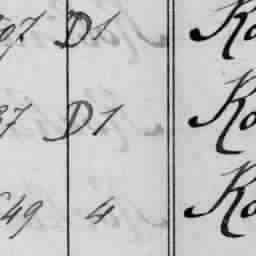 07 D1 Ko
37 D1 Ko
49 4 Ko